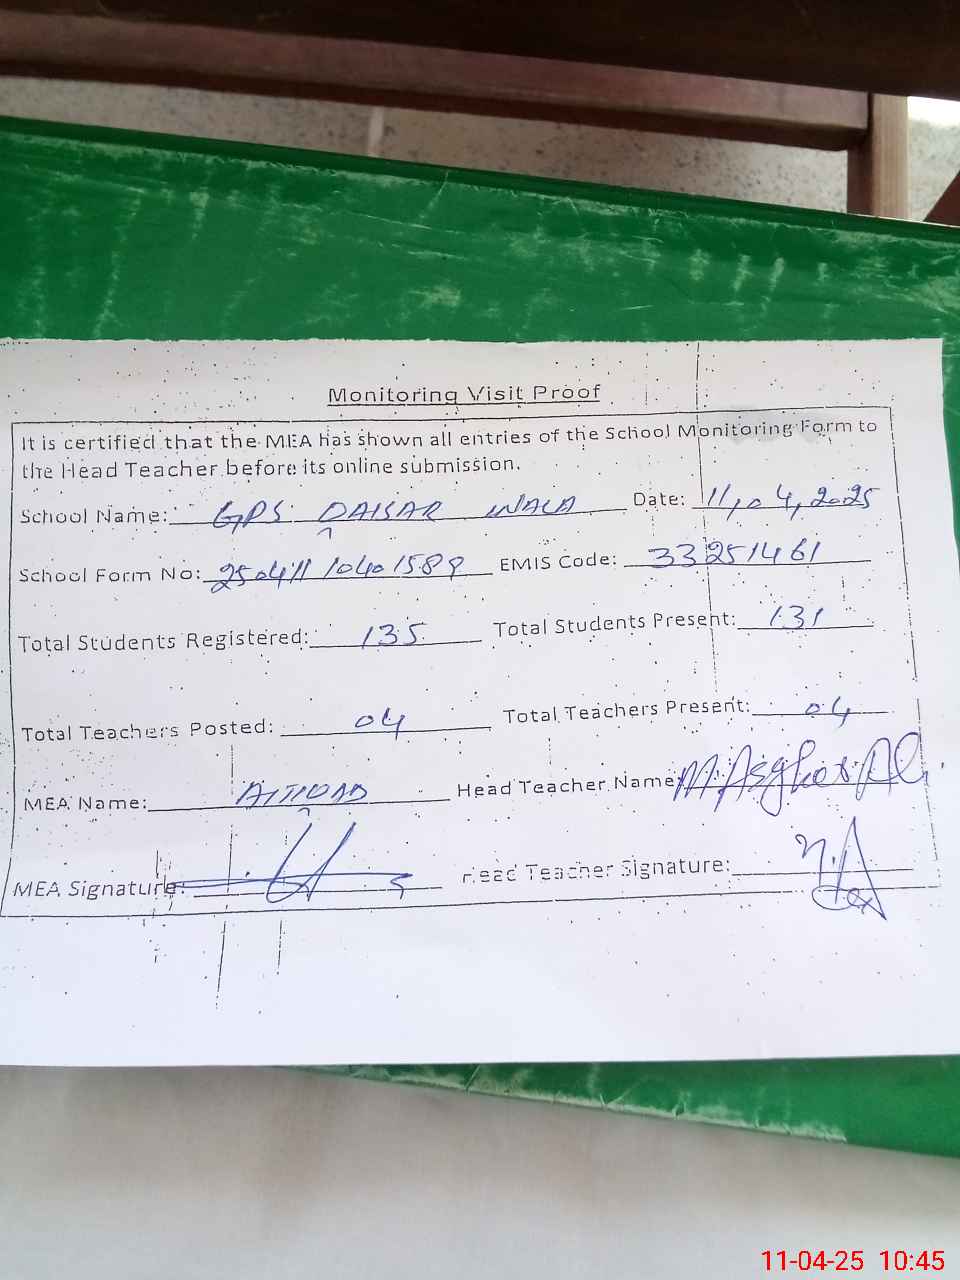 Monitoring Visit Proof
It is certified that the MEA has shown all entries of the School Monitoring Form to
the Head Teacher before its online submission.
School Name: GPS DAISAR WALA Date: 11,04,2025
School Form No: 25041110401589 EMIS Code: 33251461
Total Students Registered: 135 Total Students Present: 131
Total Teachers Posted: 04 Total Teachers Present: 04
MEA Name: Head Teacher Name M. Asghar Ali.
MEA Signature: Head Teacher Signature:
11-04-25 10:45